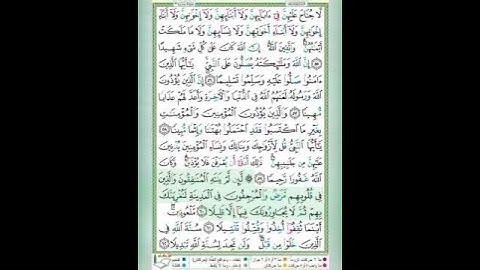 لَّا جُنَاحَ عَلَيْهِنَّ فِىٓ ءَابَآئِهِنَّ وَلَآ أَبْنَآئِهِنَّ وَلَآ إِخْوَٰنِهِنَّ وَلَآ أَبْنَآءِ
إِخْوَٰنِهِنَّ وَلَآ أَبْنَآءِ أَخَوَٰتِهِنَّ وَلَا نِسَآئِهِنَّ وَلَا مَا مَلَكَتْ
أَيْمَٰنُهُنَّ ۗ وَٱتَّقِينَ ٱللَّهَ ۚ إِنَّ ٱللَّهَ كَانَ عَلَىٰ كُلِّ شَىْءٍ شَهِيدًا
﴿٥٥﴾ إِنَّ ٱللَّهَ وَمَلَٰٓئِكَتَهُۥ يُصَلُّونَ عَلَى ٱلنَّبِىِّ ۚ يَٰٓأَيُّهَا ٱلَّذِينَ
ءَامَنُوا۟ صَلُّوا۟ عَلَيْهِ وَسَلِّمُوا۟ تَسْلِيمًا ﴿٥٦﴾ إِنَّ ٱلَّذِينَ يُؤْذُونَ
ٱللَّهَ وَرَسُولَهُۥ لَعَنَهُمُ ٱللَّهُ فِى ٱلدُّنْيَا وَٱلْءَاخِرَةِ وَأَعَدَّ لَهُمْ عَذَابًا
مُّهِينًا ﴿٥٧﴾ وَٱلَّذِينَ يُؤْذُونَ ٱلْمُؤْمِنِينَ وَٱلْمُؤْمِنَٰتِ
بِغَيْرِ مَا ٱكْتَسَبُوا۟ فَقَدِ ٱحْتَمَلُوا۟ بُهْتَٰنًا وَإِثْمًا مُّبِينًا ﴿٥٨﴾
يَٰٓأَيُّهَا ٱلنَّبِىُّ قُل لِّأَزْوَٰجِكَ وَبَنَاتِكَ وَنِسَآءِ ٱلْمُؤْمِنِينَ يُدْنِينَ
عَلَيْهِنَّ مِن جَلَٰبِيبِهِنَّ ۚ ذَٰلِكَ أَدْنَىٰٓ أَن يُعْرَفْنَ فَلَا يُؤْذَيْنَ ۗ وَكَانَ
ٱللَّهُ غَفُورًا رَّحِيمًا ﴿٥٩﴾ لَّئِن لَّمْ يَنتَهِ ٱلْمُنَٰفِقُونَ وَٱلَّذِينَ
فِى قُلُوبِهِم مَّرَضٌ وَٱلْمُرْجِفُونَ فِى ٱلْمَدِينَةِ لَنُغْرِيَنَّكَ
بِهِمْ ثُمَّ لَا يُجَاوِرُونَكَ فِيهَآ إِلَّا قَلِيلًا ﴿٦٠﴾ مَّلْعُونِينَ ۖ
أَيْنَمَا ثُقِفُوٓا۟ أُخِذُوا۟ وَقُتِّلُوا۟ تَقْتِيلًا ﴿٦١﴾ سُنَّةَ ٱللَّهِ فِى
ٱلَّذِينَ خَلَوْا۟ مِن قَبْلُ ۖ وَلَن تَجِدَ لِسُنَّةِ ٱللَّهِ تَبْدِيلًا ﴿٦٢﴾